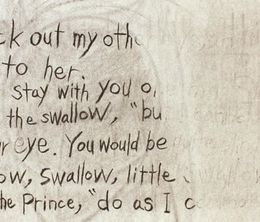 ck out my oth
to her.
stay with you o
the swallow, "bu
r eye. You would be
ow, Swallow, little
he Prince, "do as I c